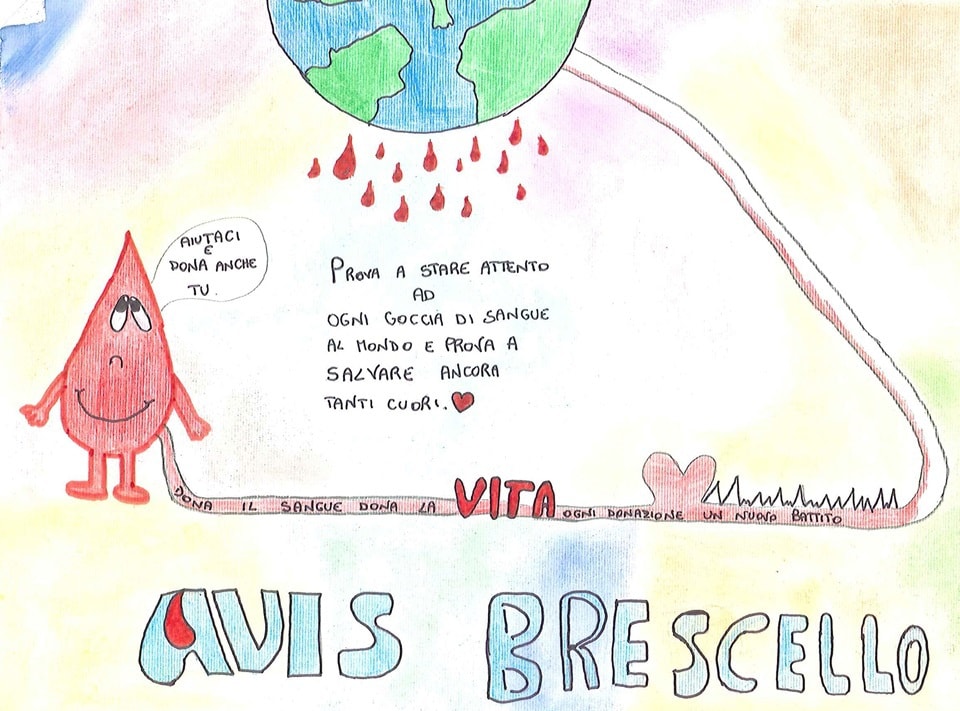 AIUTACI
E
DONA ANCHE
TU.
PROVA A STARE ATTENTO
AD
OGNI GOCCIA DI SANGUE
AL MONDO E PROVA A
SALVARE ANCORA
TANTI CUORI.
DONA IL SANGUE DONA LA VITA OGNI DONAZIONE UN NUOVO BATTITO
AVIS BRESCELLO